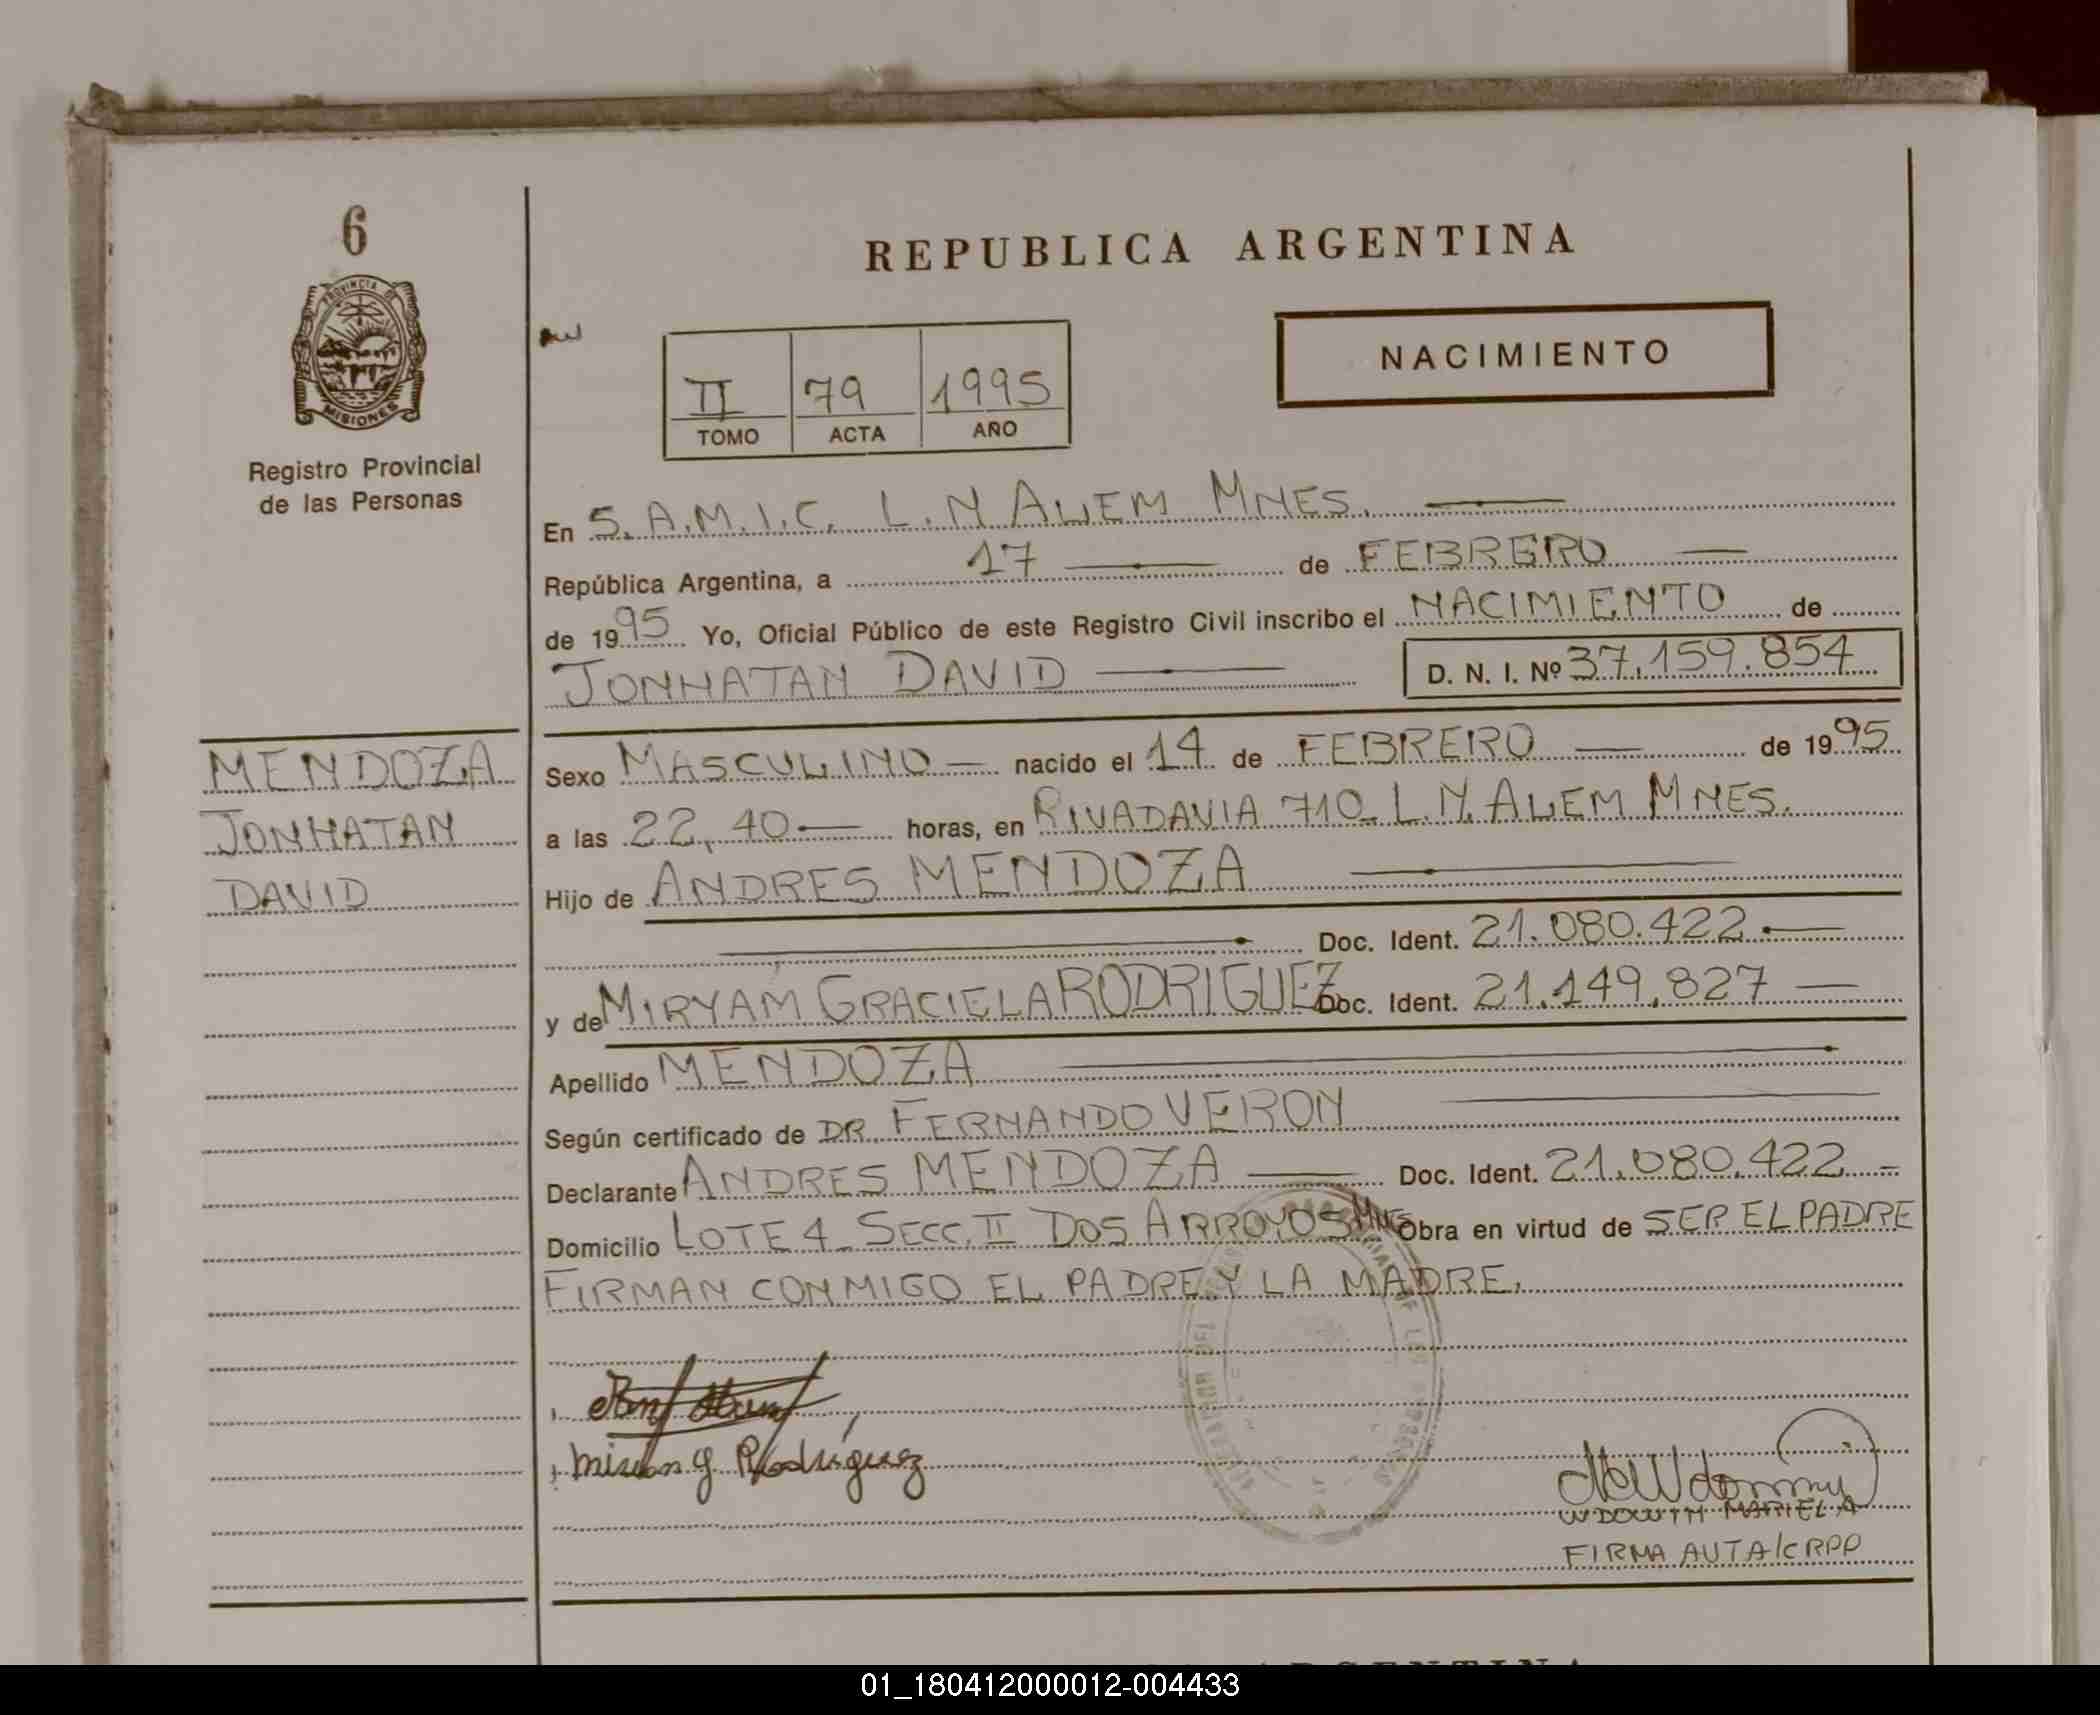 6
PROVINCIA DE
MISIONES
Registro Provincial
de las Personas
REPUBLICA ARGENTINA
NACIMIENTO
II 79 1995
TOMO ACTA AÑO
En S.A.M.I.C. L.N ALEM MNES.
República Argentina, a 17 de FEBRERO
de 1995 Yo, Oficial Público de este Registro Civil inscribo el NACIMIENTO de
JONHATAN DAVID D. N. I. Nº 37.159.854
MENDOZA
JONHATAN
DAVID
Sexo MASCULINO nacido el 14 de FEBRERO de 1995
a las 22,40 horas, en RIVADAVIA 710_ L.N. ALEM MNES.
Hijo de ANDRES MENDOZA
Doc. Ident. 21.080.422
y de MIRYAM GRACIELA RODRIGUEZ Doc. Ident. 21.149.827
Apellido MENDOZA
Según certificado de DR. FERNANDO VERON
Declarante ANDRES MENDOZA Doc. Ident. 21.080.422
Domicilio LOTE 4_ SECC. II DOS ARROYOS MNES Obra en virtud de SER EL PADRE
FIRMAN CONMIGO EL PADRE Y LA MADRE.
Rodriguez
MARIELA
FIRMA AUTA/CRPP
ARGENTINA
01_180412000012-004433